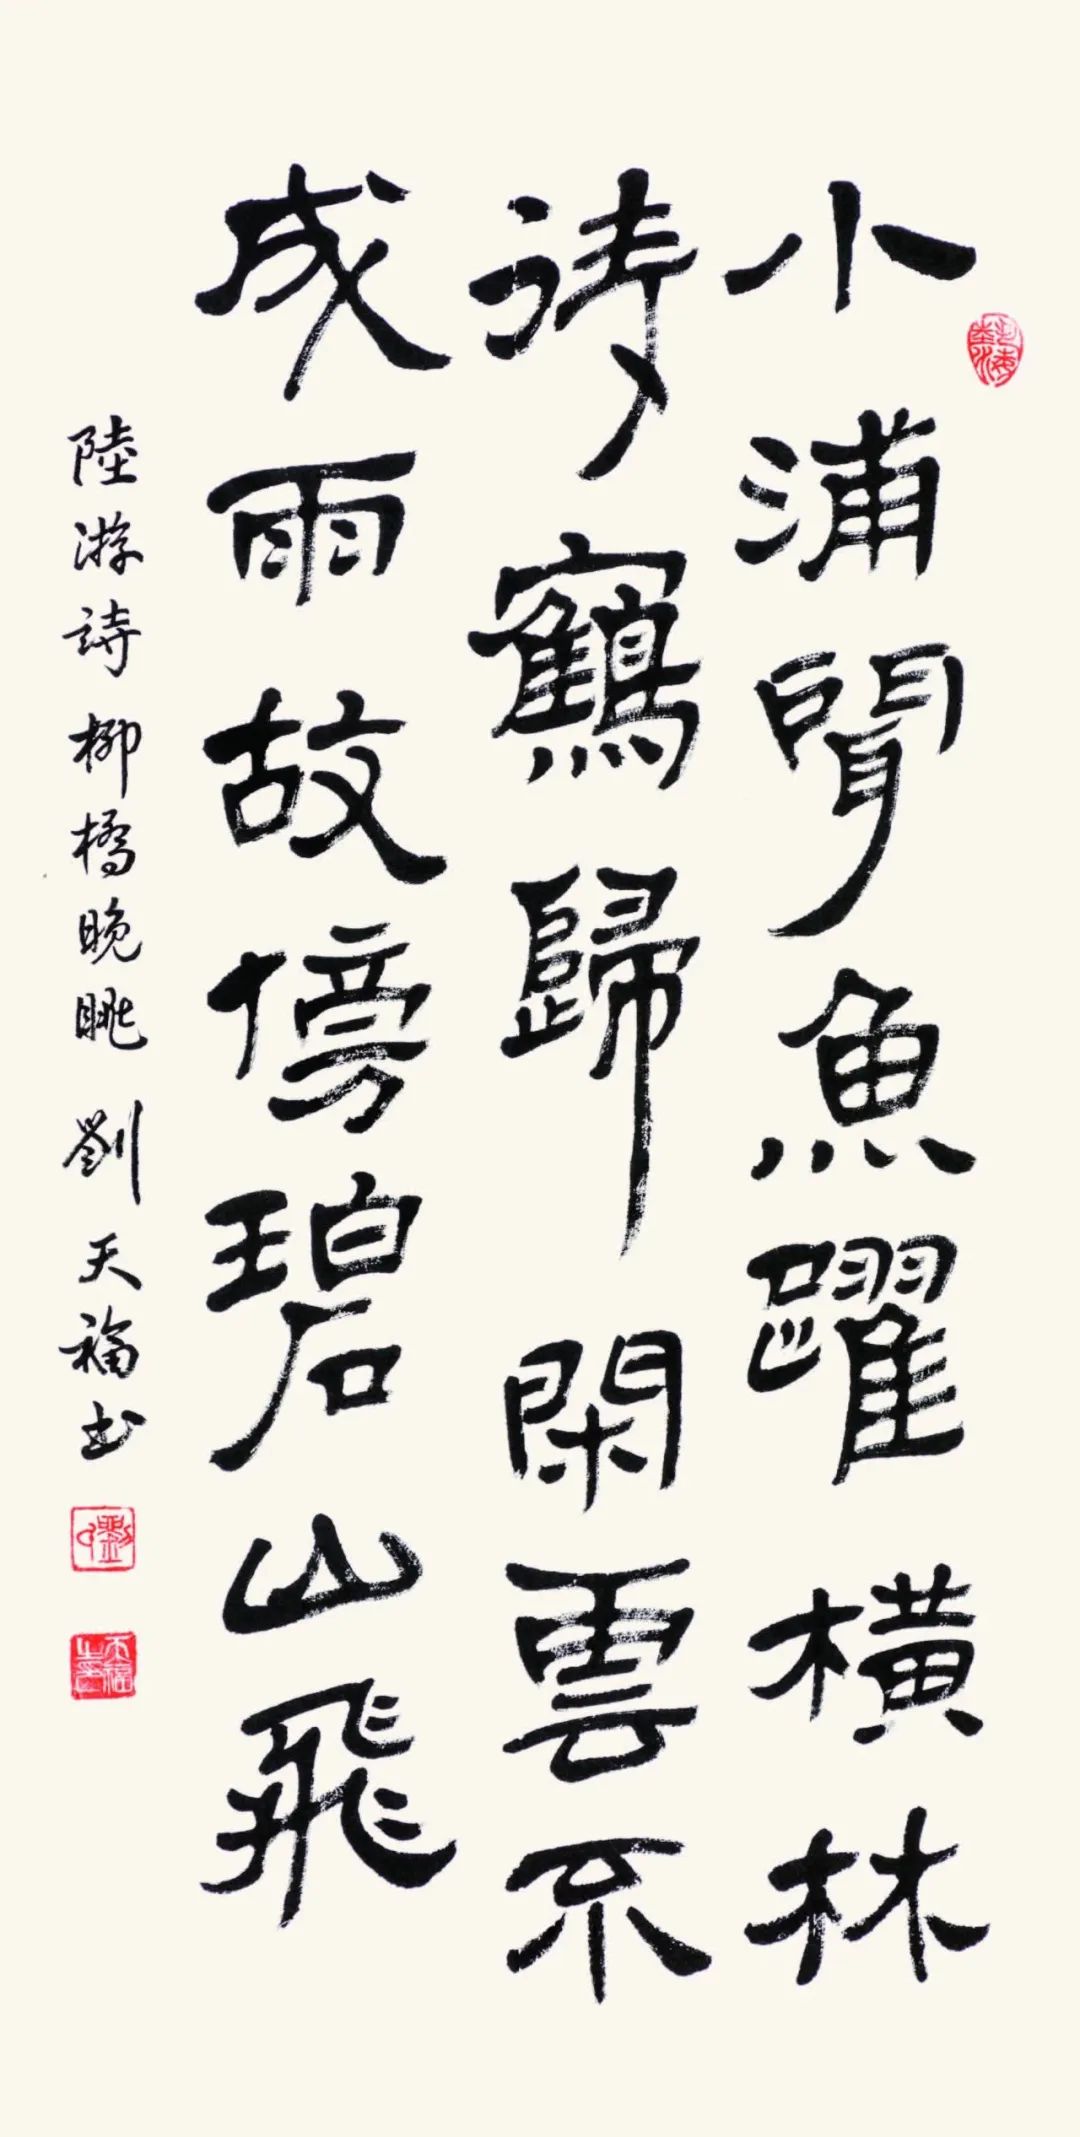 小浦聞魚躍橫林
待鶴歸閑雲不
成雨故傍碧山飛
陸游詩 柳橋晚眺 劉天福书